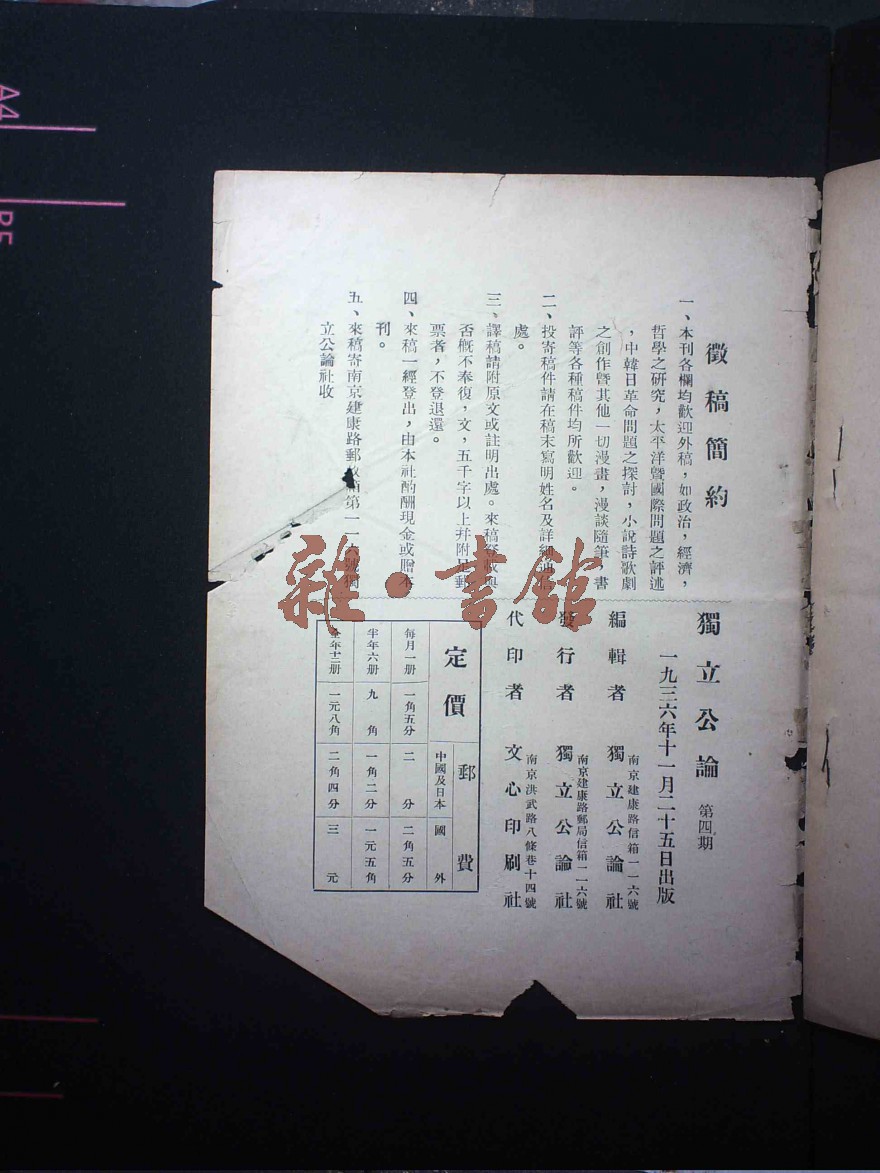 徵稿簡約
一、本刊各欄均歡迎外稿，如政治，經濟，
哲學之研究，太平洋暨國際問題之評述
，中韓日革命問題之探討，小說詩歌劇
之創作暨其他一切漫畫，漫談隨筆，書
評等各種稿件均所歡迎。
二、投寄稿件請在稿末寫明姓名及詳細通信
處。
三、譯稿請附原文或註明出處。來稿登收與
否概不奉復，文，五千字以上幷附郵
票者，不登退還。
四、來稿一經登出，由本社酌酬現金或贈本
刊。
五、來稿寄南京建康路郵箱第一一六號獨
立公論社收
獨立公論 第四期
一九三六年十一月二十五日出版
南京建康路信箱一一六號
編輯者 獨立公論社
南京建康路郵局信箱一一六號
發行者 獨立公論社
南京洪武路八條巷十四號
代印者 文心印刷社
定價 郵費
中國及日本 國外
每月一册 一角五分 二分 二角五分
半年六册 九角 一角二分 一元五角
全年十二册 一元八角 二角四分 三元
雜·書館
A4
B5